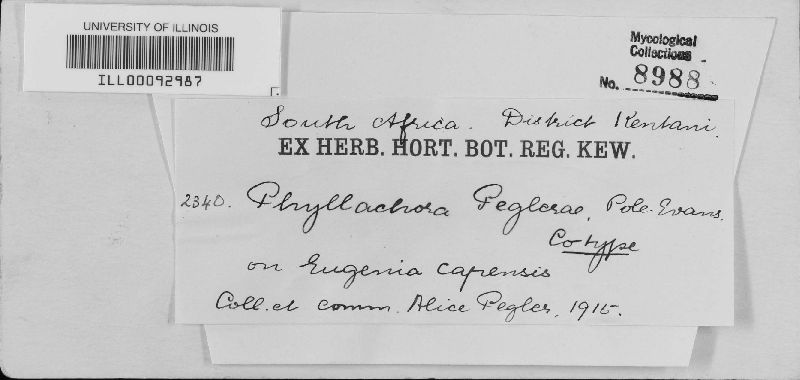 UNIVERSITY OF ILLINOIS
ILL00092987
Mycological
Collections
No. 8988
South Africa. District Kentani.
EX HERB. HORT. BOT. REG. KEW.
2340. Phyllachora Peglerae, Pole-Evans.
Co-type
on Eugenia capensis
Coll. et comm. Alice Pegler, 1915.